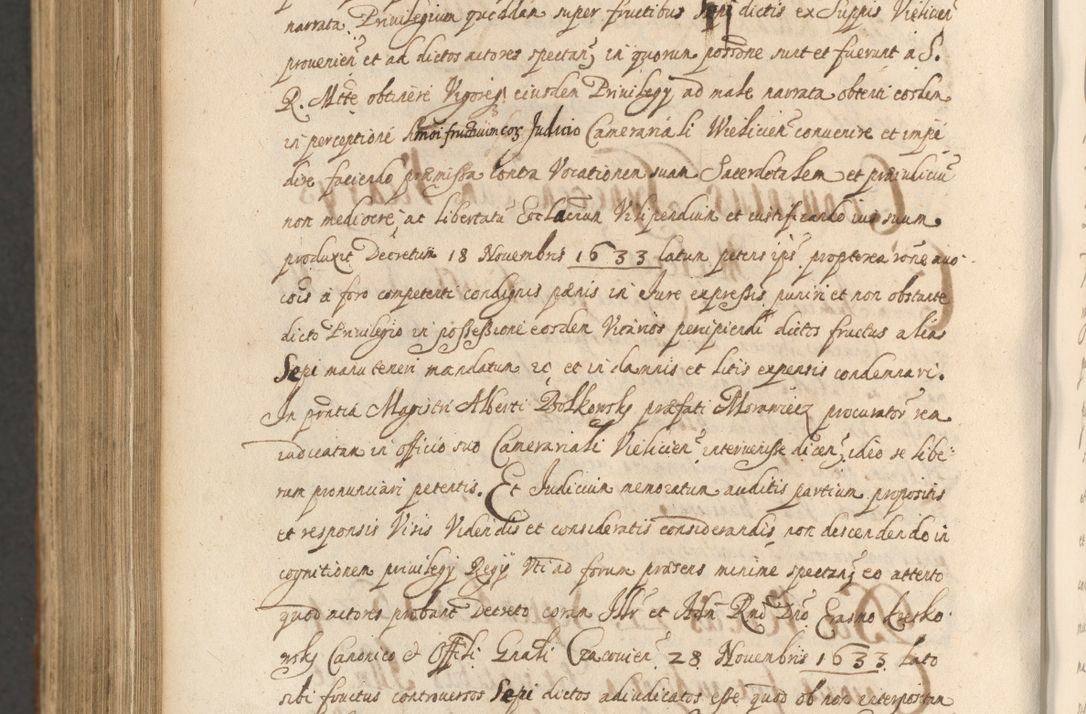 narrata Privilegium quoddam super fructibus Sepi dictis ex Suppis Vielicien
provenien et ad dictos actores spectan in quorum possone sunt et fuerunt a S.
R. Mtte obtinere Vigore eiusdem Privilegy ad male narrata obtenti eosdem
in perceptione fructuum eos Judicio Camerariali Wielicien convenire et impe
dire faciendo præmissa contra Vocationem suam Sacerdotalem et præiudiciu
non mediocre, ac libertatu Ecclarum Vilipendium et iustificando ius suum
produxit Decretum 18 Novembris 1633 latum petens ips propterea rone avo
cois a foro competenti condignis pænis in Jure expressis puniri et non obstante
dicto Privilegio in possessione eosdem Vicarios percipiendi dictos fructus alias
Sepi manuteneri mandatum 2c et in damnis et litis expensis condemnari.
In pntia Magistri Alberti Bolkowsky præfati Morawiecz procurator rea
iudicatam in officio suo Camerariali Vielicien intervenisse dicen, ideo se libe
rum pronunciari petentis. Et Judicium memoratum auditis partium propositis
et responsis Visis Videndis et consideratis considerandis non descendendo in
cognitionem privilegy Regy Vti ad forum præsens minime spectan, eo attento
quod actores probant Decreto coram Illr et Adm Rnd Dno Erasmo Kresko
wsky Canonico et Offli Gnali Cracovien 28 Novembris 1633 lato
sibi fructus controversos Sepi dictos adiudicatos esse quod ob non interpositam